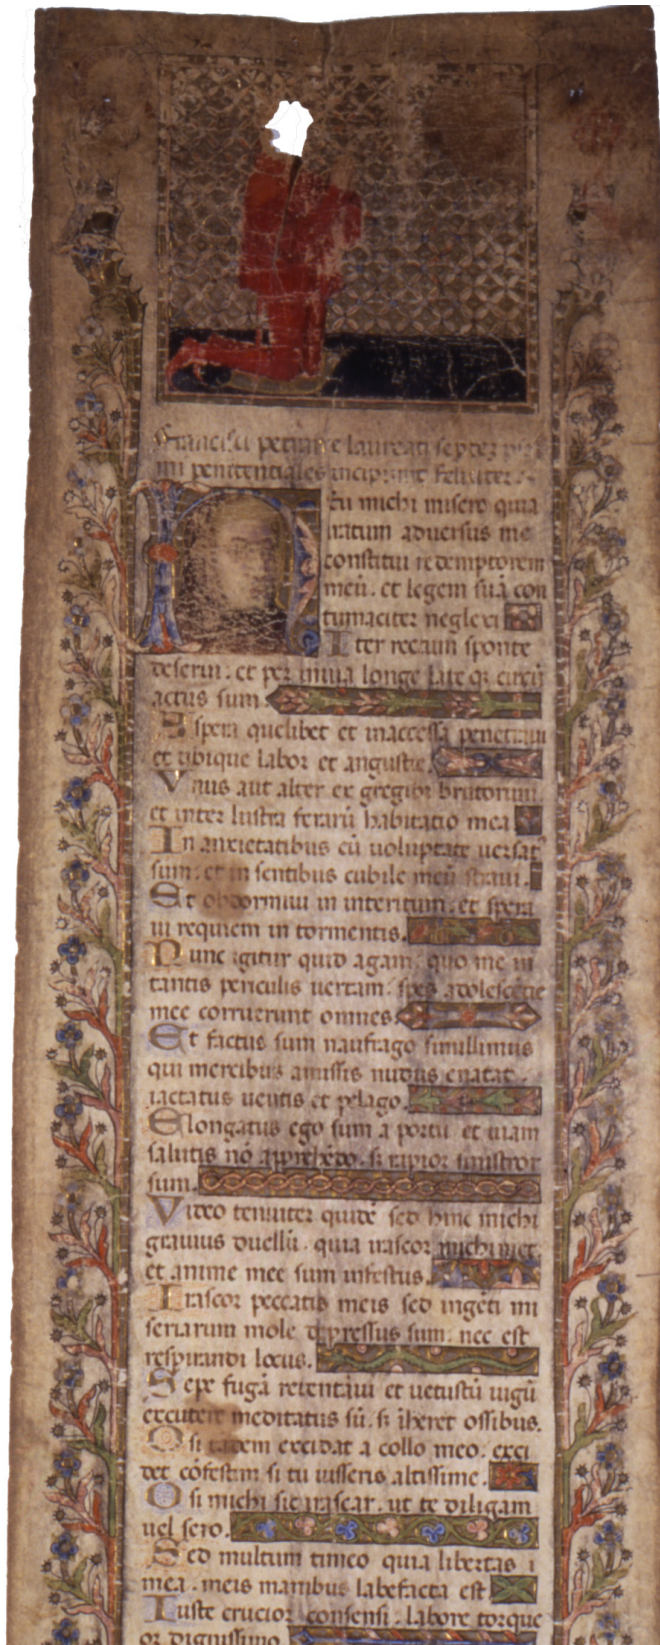 Francisci petrarce laureati septez psal
mi penitentiales incipiunt feliciter
eu michi misero quia
iratum aduersus me
constitui redemptorem
meū. et legem suā con
tumaciter neglexi
Iter rectum sponte
deserui. et per inuia longe late qȝ circū
actus sum.
Aspera quelibet et inaccessa penetraui
et ubique labor et angustie.
Vnus aut alter ex gregibꝰ brutorum
et inter lustra ferarū habitatio mea
In anxietatibus cū uoluptate uersatꝰ
sum. et in sentibus cubile meū straui.
Et obdormiui in interitum. et spera
ui requiem in tormentis.
Nunc igitur quid agam. quo me in
tantis periculis uertam. spes adolescētie
mee corruerunt omnes
Et factus sum naufrago simillimus
qui mercibus amissis nudus enatat.
iactatus uentis et pelago.
Elongatus ego sum a portu et uiam
salutis nō apprehēdo. si rapior sinistror
sum.
Video tenuiter quidē sed hinc michi
grauius duellū. quia irascor michimet
et anime mee sum infestus.
Irascor peccatis meis sed ingēti mi
seriarum mole depressus sum. nec est
respirandi locus.
Sepe fugā retentaui et uetustū iugū
excutere meditatus sū. sꝫ īheret ossibus.
O si tadem excidat a collo meo. exci
det cōfestim si tu iusseris altissime.
O si michi sic irascar. ut te diligam
uel sero.
Sed multum timeo quia libertas
mea. meis manibus labefacta est
Iuste crucior consensi. labore torque
or dignissimo